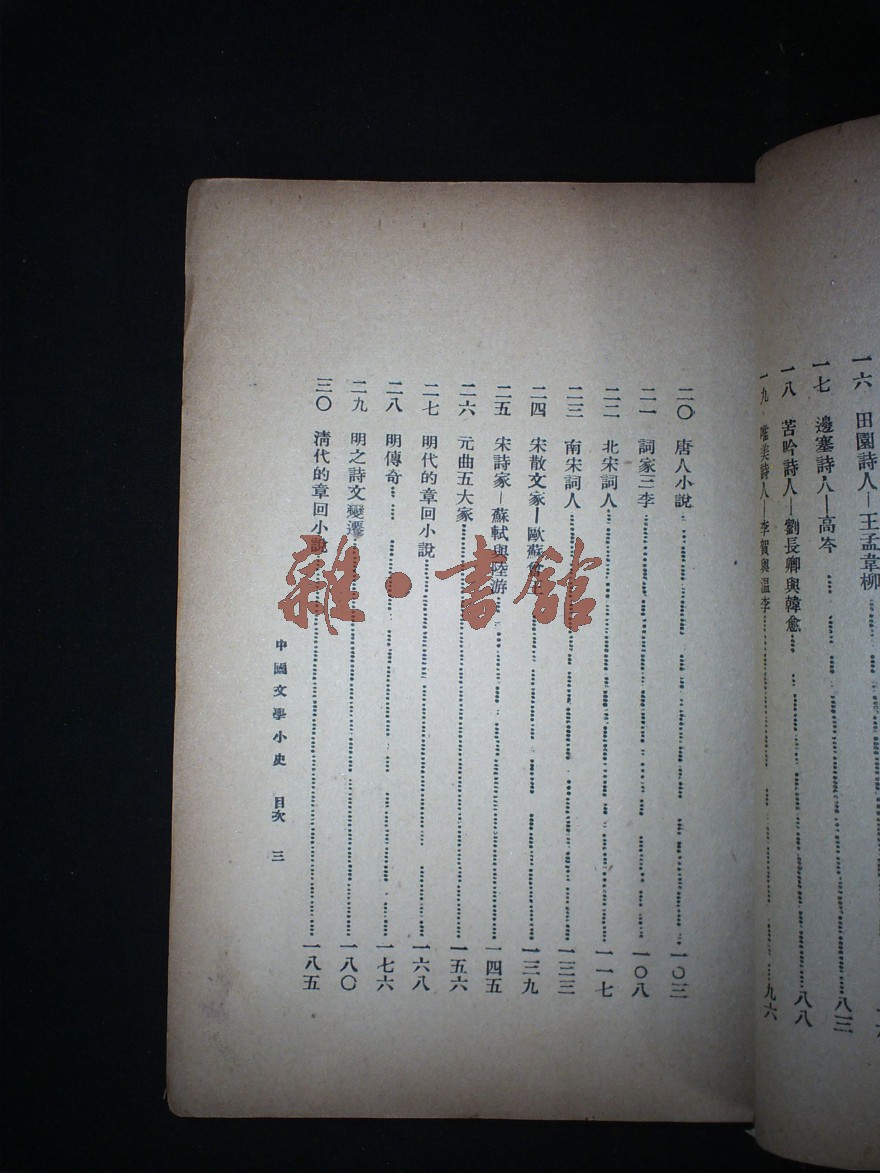 一六　田園詩人—王孟韋柳
一七　邊塞詩人—高岑　八三
一八　苦吟詩人—劉長卿與韓愈　八八
一九　唯美詩人—李賀與溫李　九六
二〇　唐人小說　一〇三
二一　詞家三李　一〇八
二二　北宋詞人　一一七
二三　南宋詞人　一三三
二四　宋散文家—歐蘇曾王　一三九
二五　宋詩家—蘇軾與陸游　一四五
二六　元曲五大家　一五六
二七　明代的章回小說　一六八
二八　明傳奇　一七六
二九　明之詩文變遷　一八〇
三〇　清代的章回小說　一八五
中國文學小史　目次　三
雜·書館